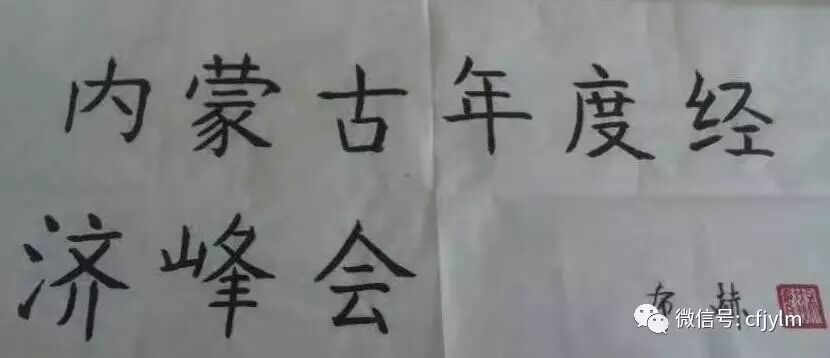 内蒙古年度经
济峰会
布赫
微信号: cfjylm